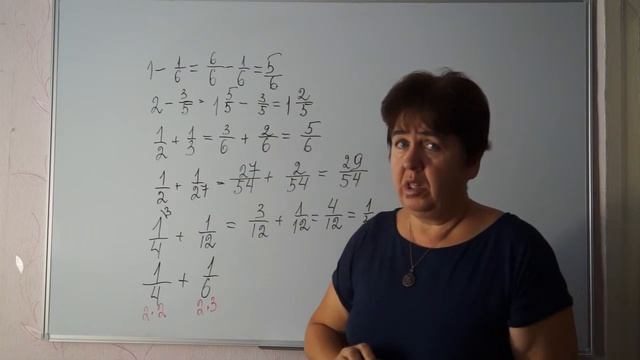 1 - 1/6 = 6/6 - 1/6 = 5/6
2 - 3/5 = 1 5/5 - 3/5 = 1 2/5
1/2 + 1/3 = 3/6 + 2/6 = 5/6
1/2 + 1/27 = 27/54 + 2/54 = 29/54
1\3/4 + 1/12 = 3/12 + 1/12 = 4/12 = 1/
1/4 + 1/6
2·2 2·3